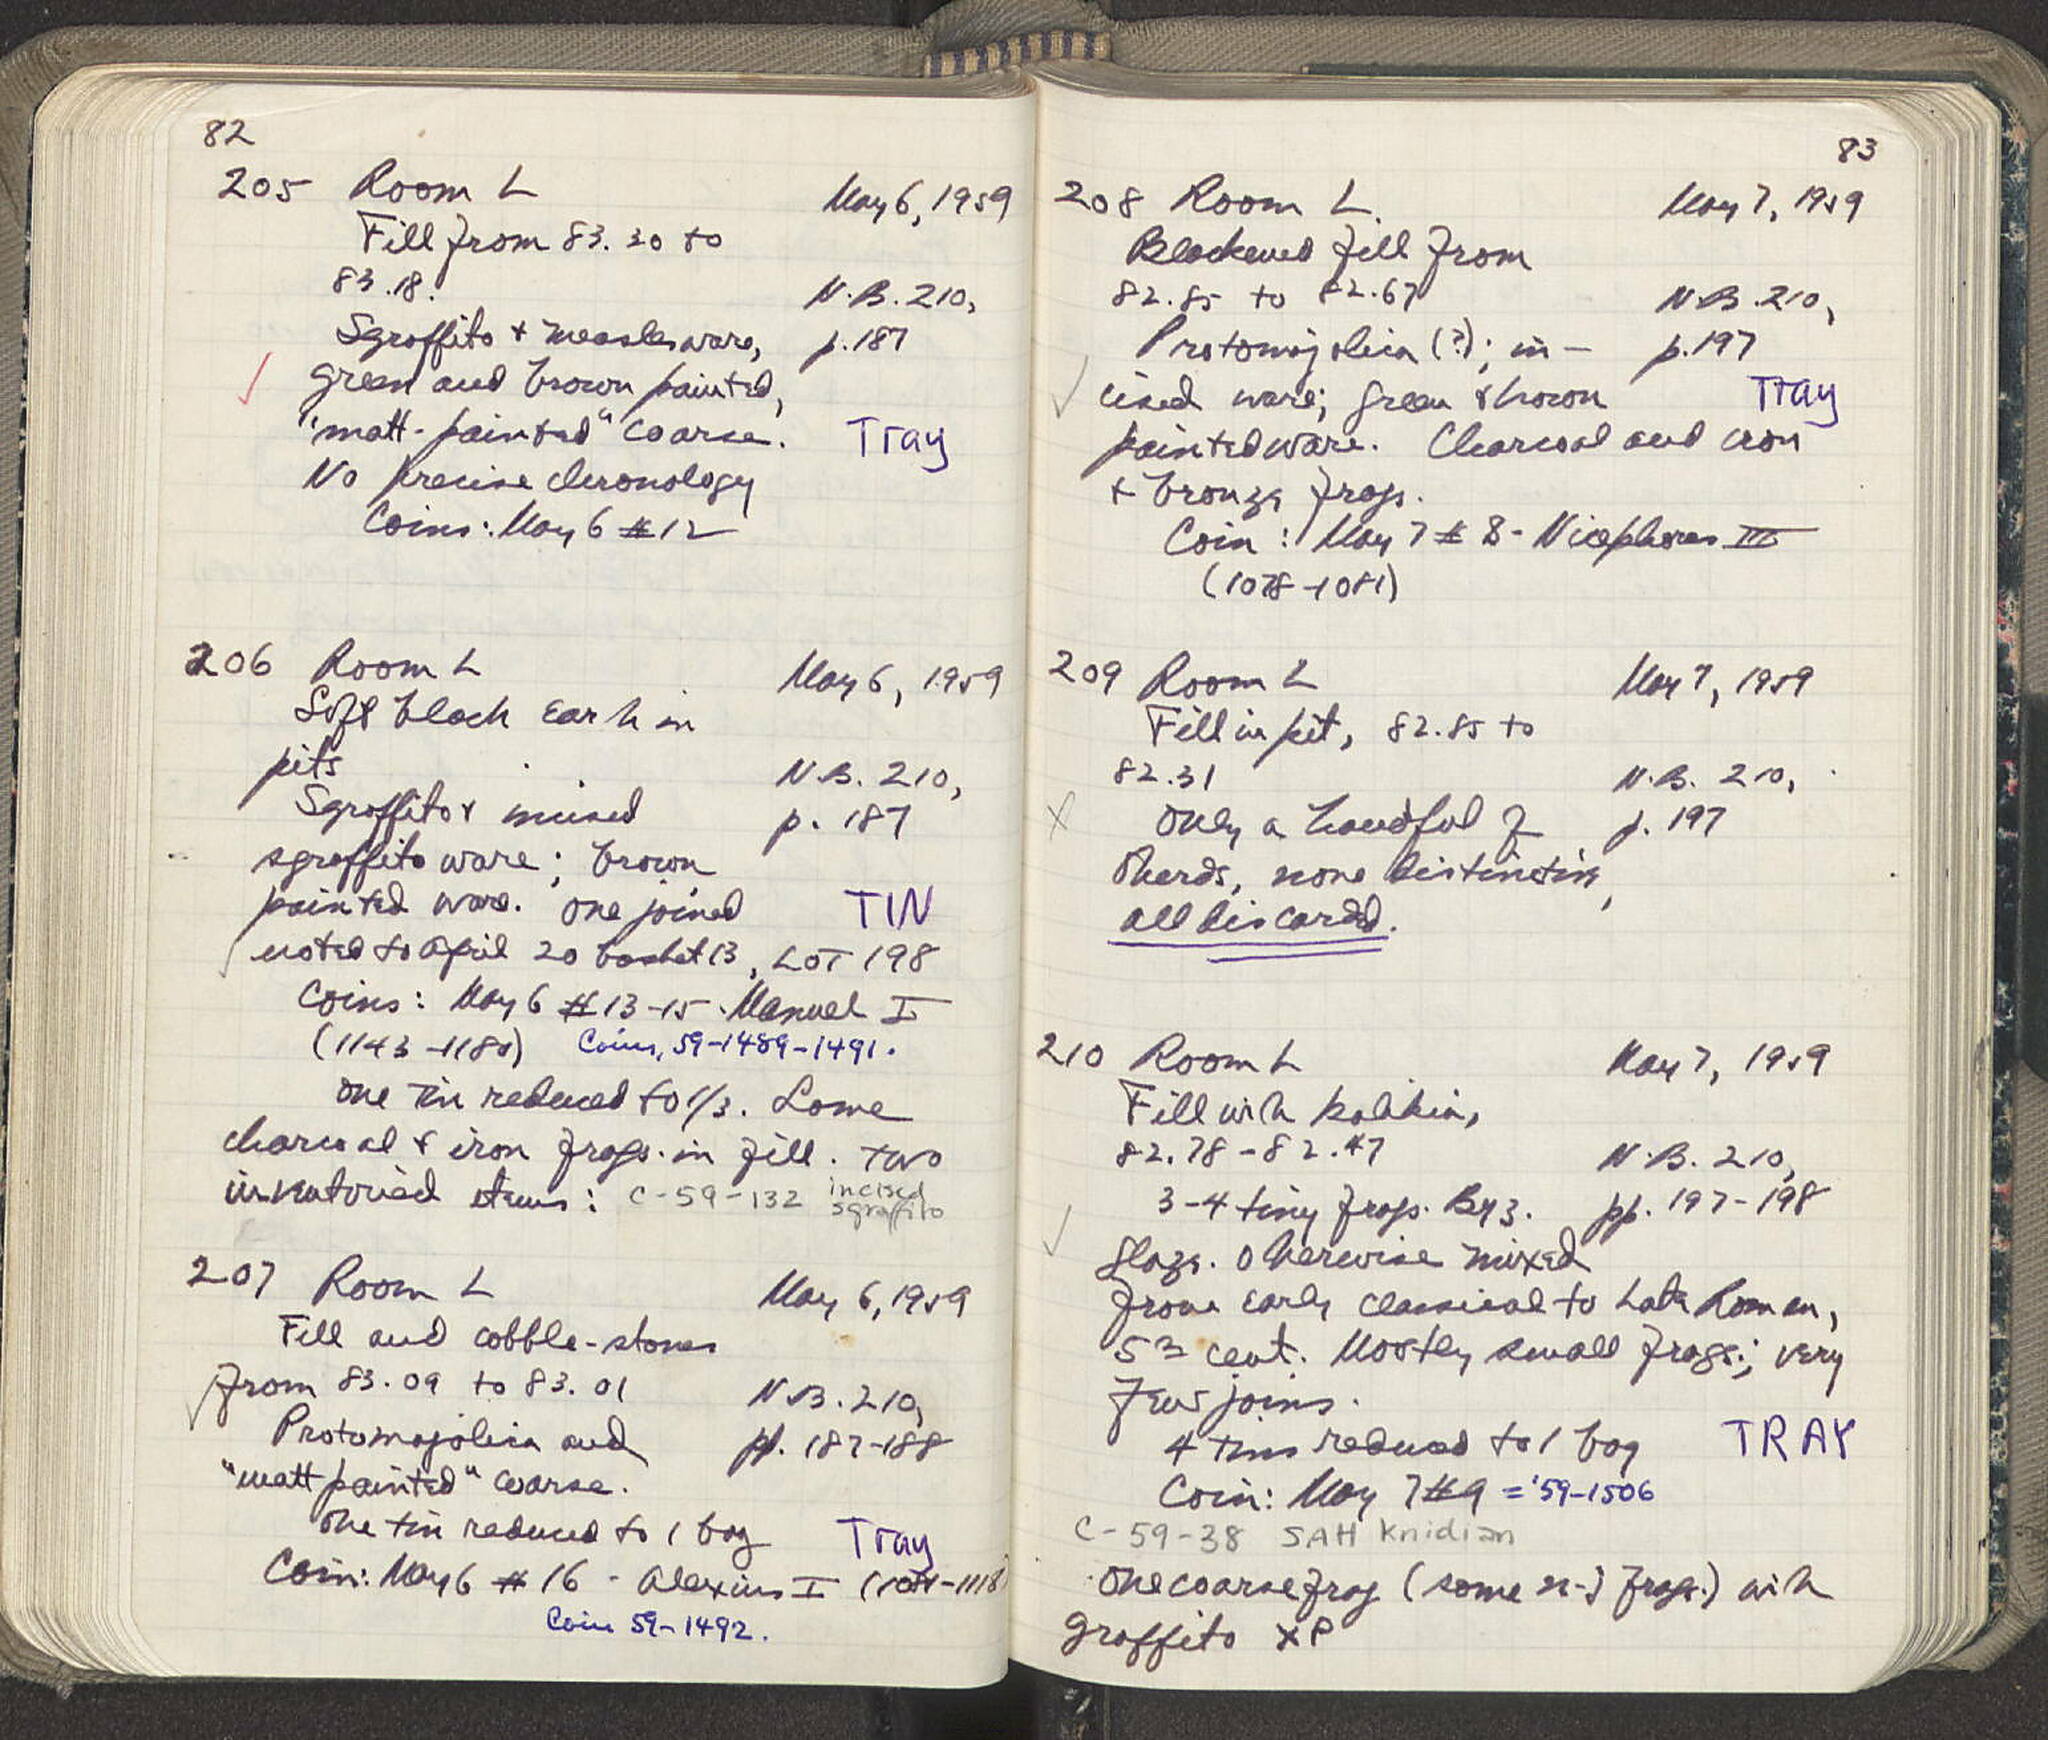 82
205 Room L May 6, 1959
Fill from 83.20 to
83.18. N.B. 210,
Sgraffito + measles ware, p. 187
green and brown painted,
"matt-painted" coarse. Tray
No precise chronology
Coins: May 6 #12
206 Room L May 6, 1959
Soft black earth in
pits N.B. 210,
Sgraffito + incised p. 187
sgraffito ware; brown
painted ware. One joined TIN
noted to April 20 basket 13, LOT 198
Coins: May 6 #13-15 · Manuel I
(1143-1180) Coins, 59-1489-1491.
One tin reduced to 1/3. Some
charcoal + iron frags. in fill. Two
inventoried items: C-59-132 incised
sgraffito
207 Room L May 6, 1959
Fill and cobble-stones
from 83.09 to 83.01 N.B. 210,
Protomajolica and pp. 187-188
"matt painted" coarse.
One tin reduced to 1 bag Tray
Coin: May 6 #16 - Alexius I (1081-1118)
Coin 59-1492.
83
208 Room L. May 7, 1959
Blackened fill from
82.85 to 82.67 N.B. 210,
Protomajolica (?); in- p. 197
cised ware; green + brown Tray
painted ware. Charcoal and iron
+ bronze frags.
Coin: May 7 #8 - Nicephores III
(1078-1081)
209 Room L May 7, 1959
Fill in pit, 82.85 to
82.31 N.B. 210,
Only a handful of p. 197
sherds, none distinctive,
all discarded.
210 Room L May 7, 1959
Fill with kalikia,
82.78-82.47 N.B. 210,
3-4 tiny frags. Byz. pp. 197-198
glaze. Otherwise mixed
from early classical to Late Roman,
5th cent. Mostly small frags.; very
few joins.
4 tins reduced to 1 bag TRAY
Coin: May 7 #9 = '59-1506
C-59-38 SAH Knidian
One coarse frag (some n-j frags.) with
graffito XP